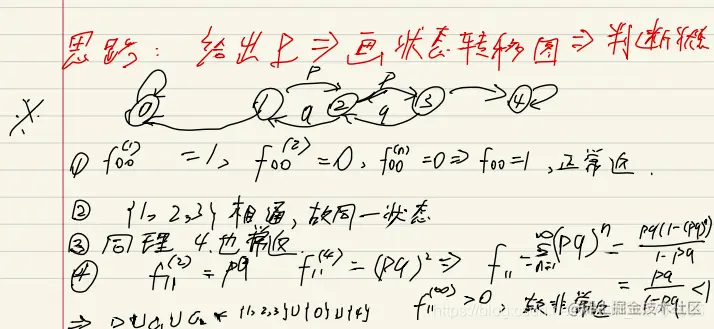 思路: 给出P⇒画状态转移图⇒判断状态
p p
0 1 2 3 4
q q
① f₀₀⁽¹⁾ =1, f₀₀⁽²⁾=0, f₀₀⁽ⁿ⁾=0⇒f₀₀=1, 正常返.
② {1,2,3}相通,故同一状态
③ 同理 4也常返
④ f₁₁⁽²⁾=pq f₁₁⁽⁴⁾=(pq)²⇒ f₁₁=∑ₙ₌₁^∞(pq)ⁿ=
= pq/(1-pq) <1
f₁₁⁽∞⁾>0, 故非常返
{1,2,3}∪{0}∪{4}
@稀土掘金技术社区